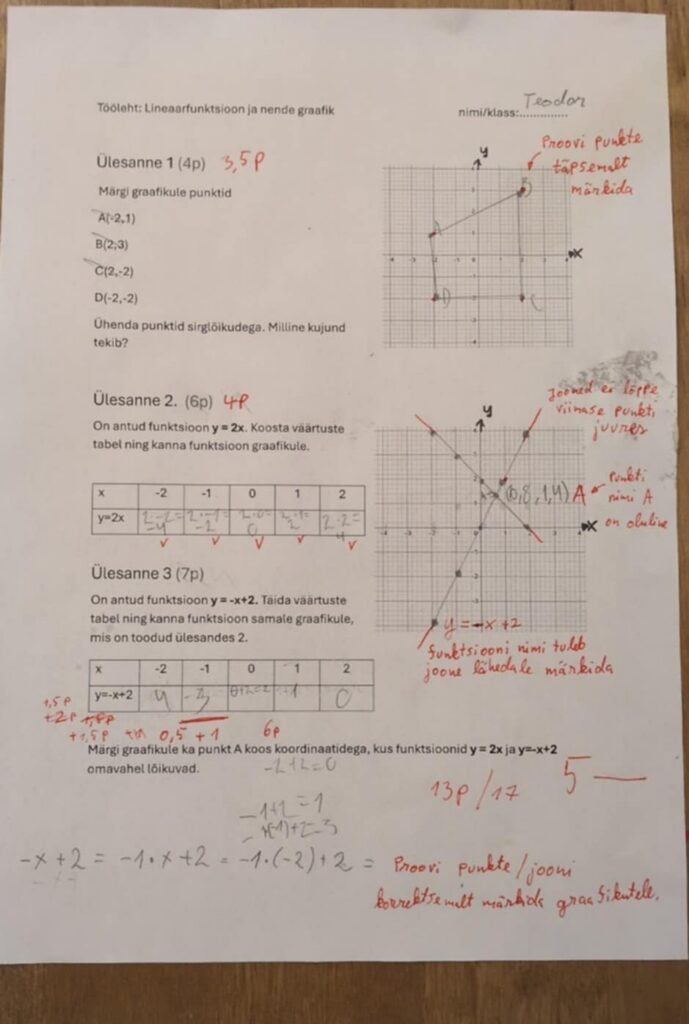 Tööleht: Lineaarfunktsioon ja nende graafik
nimi/klass:.............. Teodor
Ülesanne 1 (4p) 3,5p
Proovi punkte
täpsemalt
märkida
Märgi graafikule punktid
A(-2,1)
B(2,3)
C(2,-2)
D(-2,-2)
Ühenda punktid sirglõikudega. Milline kujund
tekib?
y
x
A
B
D
C
Ülesanne 2. (6p) 4p
Jooned ei lõppe
viimase punkti
juures
On antud funktsioon y = 2x. Koosta väärtuste
tabel ning kanna funktsioon graafikule.
x -2 -1 0 1 2
y=2x 2·-2= -4 2·-1= -2 2·0= 0 2·1= 2 2·2= 4
y
x
(0,8,1,4) A
punkti
nimi A
on oluline
y = -x+2
funktsiooni nimi tuleb
joone lähedale märkida
Ülesanne 3 (7p)
On antud funktsioon y = -x+2. Täida väärtuste
tabel ning kanna funktsioon samale graafikule,
mis on toodud ülesandes 2.
x -2 -1 0 1 2
y=-x+2 4 -3 0+2=2 0
1,5p
+2p
+1,5p 0,5+1 6p
Märgi graafikule ka punkt A koos koordinaatidega, kus funktsioonid y = 2x ja y=-x+2
omavahel lõikuvad.
-2+2=0
13p/17 5—
-1+2=1
-x+2 = -1·x+2 = -1·(-2)+2 =
Proovi punkte/jooni
korrektsemalt märkida graafikutele.